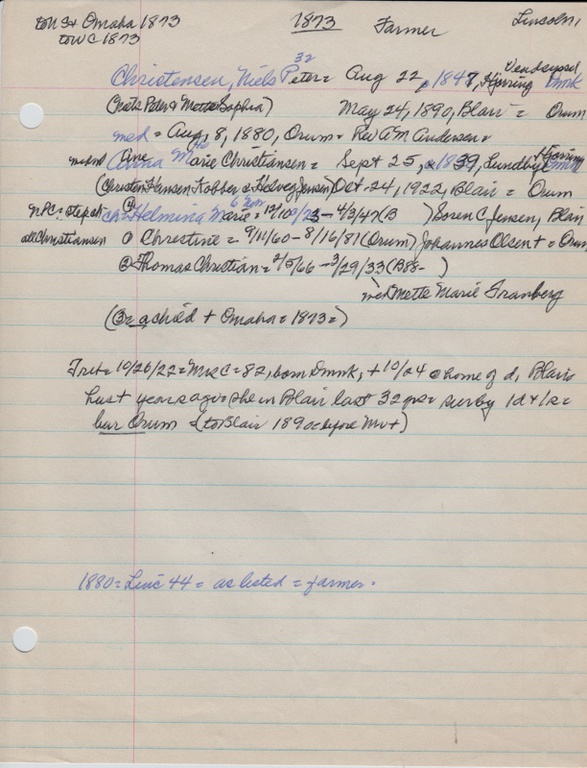 to US + Omaha 1873 1873 Farmer Lincoln
to WC 1873
32 Vendsyssel
Christensen, Niels Peter = Aug 22, 1847, Hjorring Dmk
(Niels Peter & Mette Sophia) May 24, 1890, Blair = Orum
med = Aug, 8, 1880, Orum = Rev A M Andersen =
Anna Marie Christiansen = Sept 25, 1839, Lundby, Hjorring
(Christen Hansen Kobber & Helveg Jensen) Oct-24, 1922, Blair = Orum
NPC = step ch Helmina Marie = - 4/3/47 (B ) Soren C Jensen, Blair
all Christiansen Christine = 9/11/60 - 8/16/81 (Orum) Johannes Olsen + = Orum
Thomas Christian = 2/5/66 - 3/29/33 (B88- )
med Mette Marie Franberg
(3rd child + Omaha = 1873 = )
Trib = 10/26/22 = Mrs C = 82, born Dmnk, + 10/24 @ home of d, Blair
hust years ago = she in Blair last 32 yrs = surv by 1d + 1s =
bur Orum (to Blair 1890 = before Mv +)
1880 = Linc 44 = as listed = farmer.